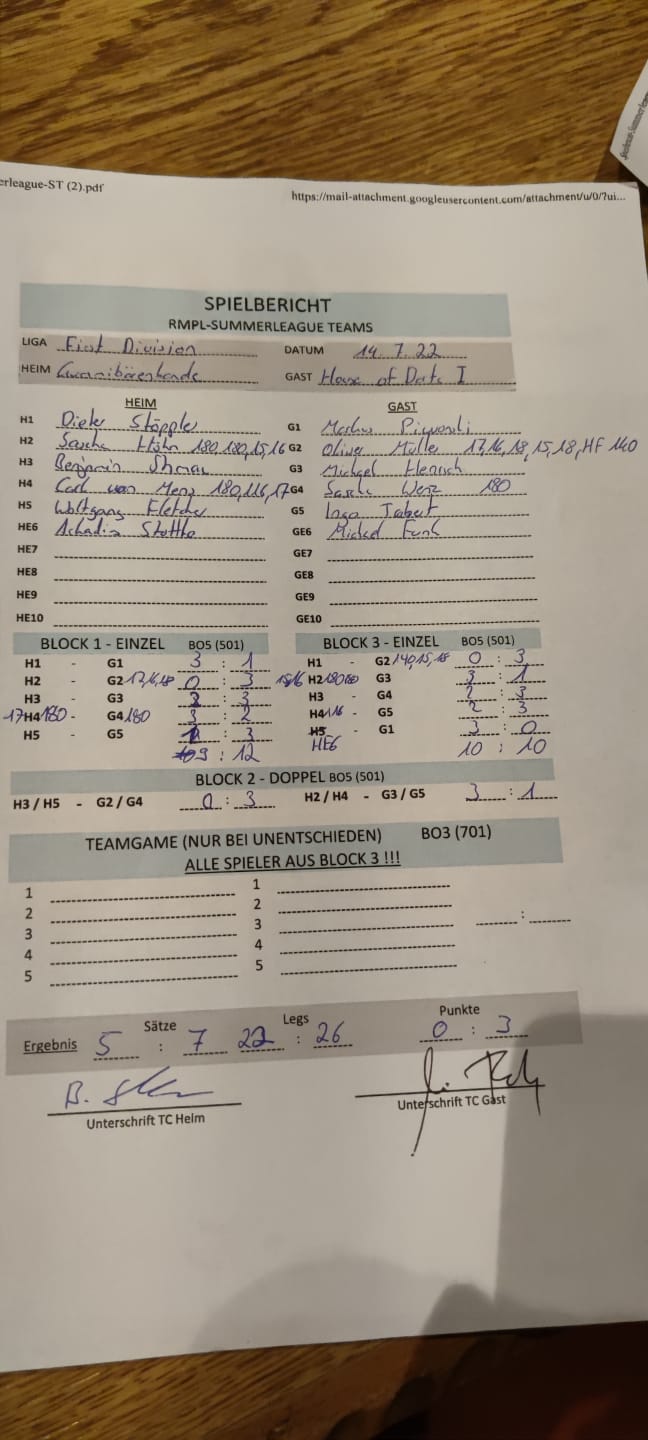 erleague-ST (2).pdf https://mail-attachment.googleusercontent.com/attachment/u/0/?ui...
SPIELBERICHT
RMPL-SUMMERLEAGUE TEAMS
LIGA First Division DATUM 14.7.22
HEIM GAST House of Darts I
HEIM GAST
H1 Dieter Stöppler G1 Markus
H2 Sascha Höhn 180,180,15,16 G2 Oliver Müller 17,16,18,15,18,HF 140
H3 Benjamin G3 Michael Henrich
H4 Carl van 180,116,17 G4 180
H5 Wolfgang Fletcher G5 Ingo
HE6 GE6 Michael Funk
HE7 GE7
HE8 GE8
HE9 GE9
HE10 GE10
BLOCK 1 - EINZEL BO5 (501) BLOCK 3 - EINZEL BO5 (501)
H1 - G1 3 : 1 H1 - G2 140,15,18 0 : 3
H2 - G2 17,16,18 0 : 3 15,16 H2 180 180 G3 3 : 1
H3 - G3 : 3 H3 - G4 2 : 3
17 H4 180 - G4 180 3 : 2 H4 116 - G5 2 : 3
H5 - G5 : 3 H5 - G1 3 : 0
9 : 12 HE6 10 : 10
BLOCK 2 - DOPPEL BO5 (501)
H3 / H5 - G2 / G4 0 : 3 H2 / H4 - G3 / G5 3 : 1
TEAMGAME (NUR BEI UNENTSCHIEDEN) BO3 (701)
ALLE SPIELER AUS BLOCK 3 !!!
1 1
2 2
3 3 :
4 4
5 5
Sätze Legs Punkte
Ergebnis 5 : 7 22 : 26 0 : 3
Unterschrift TC Heim Unterschrift TC Gast